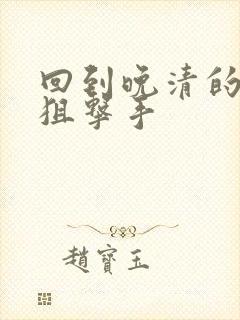 回到晚清的
狙擊手
趙寶玉